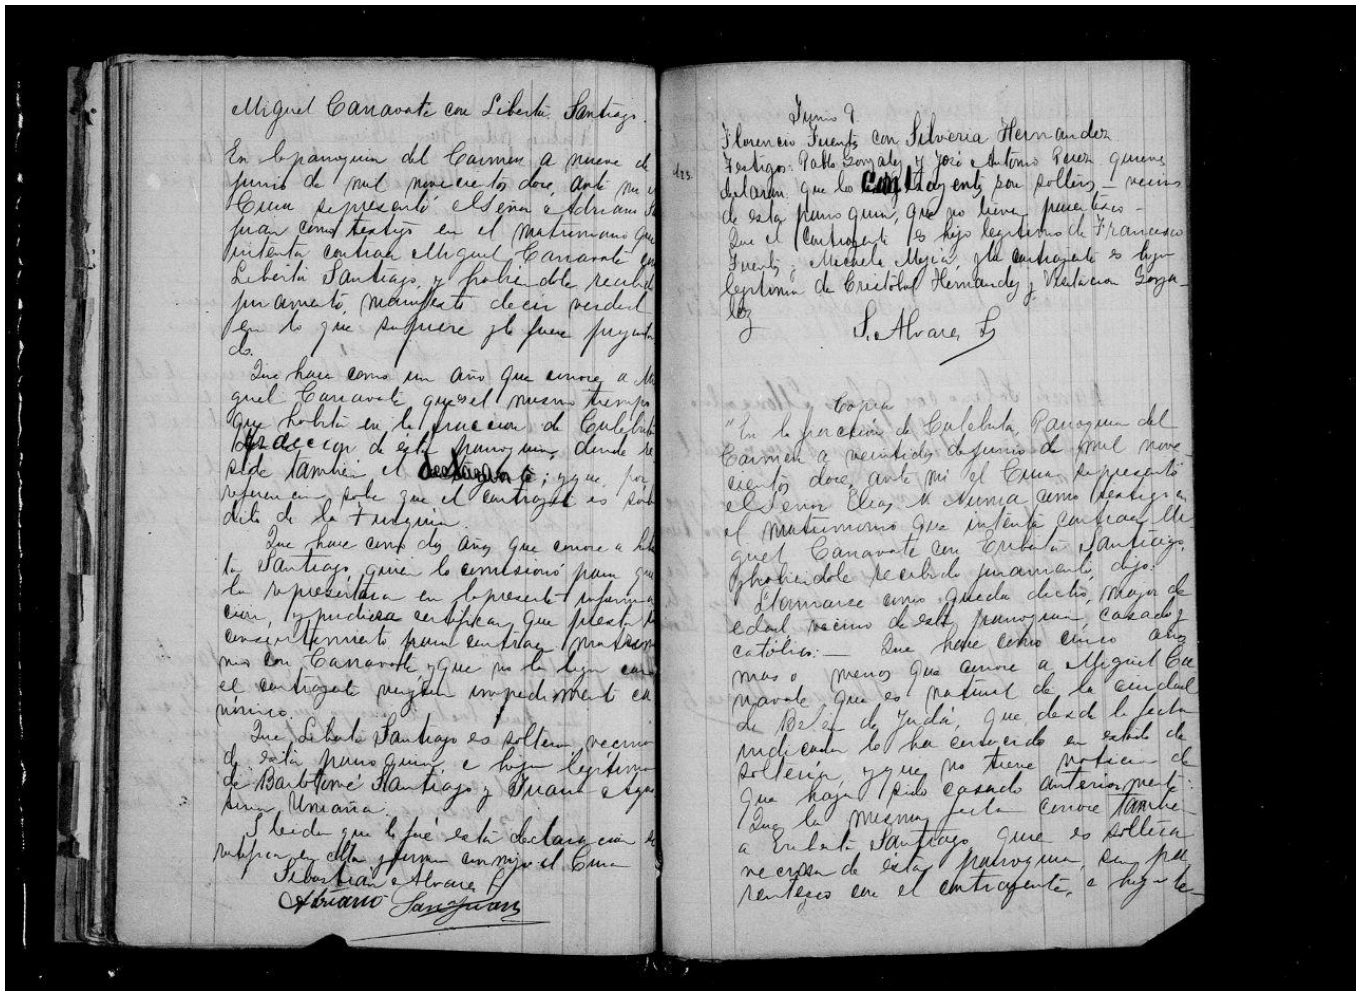 Miguel Canavate con Liberta Santiago.
En la parroquia del Carmen a nueve de
junio de mil novecientos doce, ante mi el
Cura se presentó el Señor Adriano San
juan como testigo en el matrimonio que
intenta contraer Miguel Canavate con
Liberta Santiago, y habiendole recibido
juramento, manifestó decir verdad
en lo que supiere y le fuere pregunta
do.
Que hace como un año que conoce a Mi
guel Canavate, que es el mismo tiempo
que habita en la fraccion de Culebrita
de esta parroquia, donde re
side tambien el declarante; y que por
referencia, sabe que el contrayente es súb
dito de la Turquia.
Que hace como dos años que conoce a Liber
ta Santiago, quien lo comisionó para que
la representara en la presente informa
cion, y pudiera certificar que presta su
consentimiento para contraer matrimo
nio con Canavate, y que no la liga con
el contrayente ningun impedimento ca
nónico.
Que Liberta Santiago es soltera, vecina
de esta parroquia, e hija legítima
de Bartolomé Santiago y Juana
Umaña.
I leida que le fué esta declaracion se
ratifica en ella y firma conmigo el Cura
Sebastian Alvarez
Adriano SanJuan
Junio 9.
Florencio Fuentes con Silveria Hernandez
Testigos: Pablo Gonzalez y José Antonio Perez quienes
declaran que los contrayentes son solteros — vecinos
de esta parroquia, que no tienen parentesco —
Que el contrayente es hijo legitimo de Francisco
Fuentes y Micaela Mejía, y la contrayente es hija
legitima de Cristóbal Hernandez y Visitacion Gonza-
lez
S. Alvarez
Copia
"En la fraccion de Culebrita, Parroquia del
Carmen a veintidos de junio de mil nove-
cientos doce, ante mi el Cura se presentó
el Señor Elias M Numa como testigo en
el matrimonio que intenta contraer Mi-
guel Canavate con Eriberta Santiago,
y habiendole recibido juramento, dijo:
Llamarse como queda dicho, mayor de
edad, vecino de esta parroquia, casado y
católico: — Que hace como cinco años
mas o menos que conoce a Miguel Ca
navate que es natural de la ciudad
de Belén de Judá, que desde la fecha
indicada lo ha conocido en estado de
solteria, y que no tiene noticia de
que haya sido casado anteriormente:
Que la misma fecha conoce tambié
a Eriberta Santiago que es soltera
vecina de esta parroquia, sin pa
rentesco con el contrayente, e hija le-